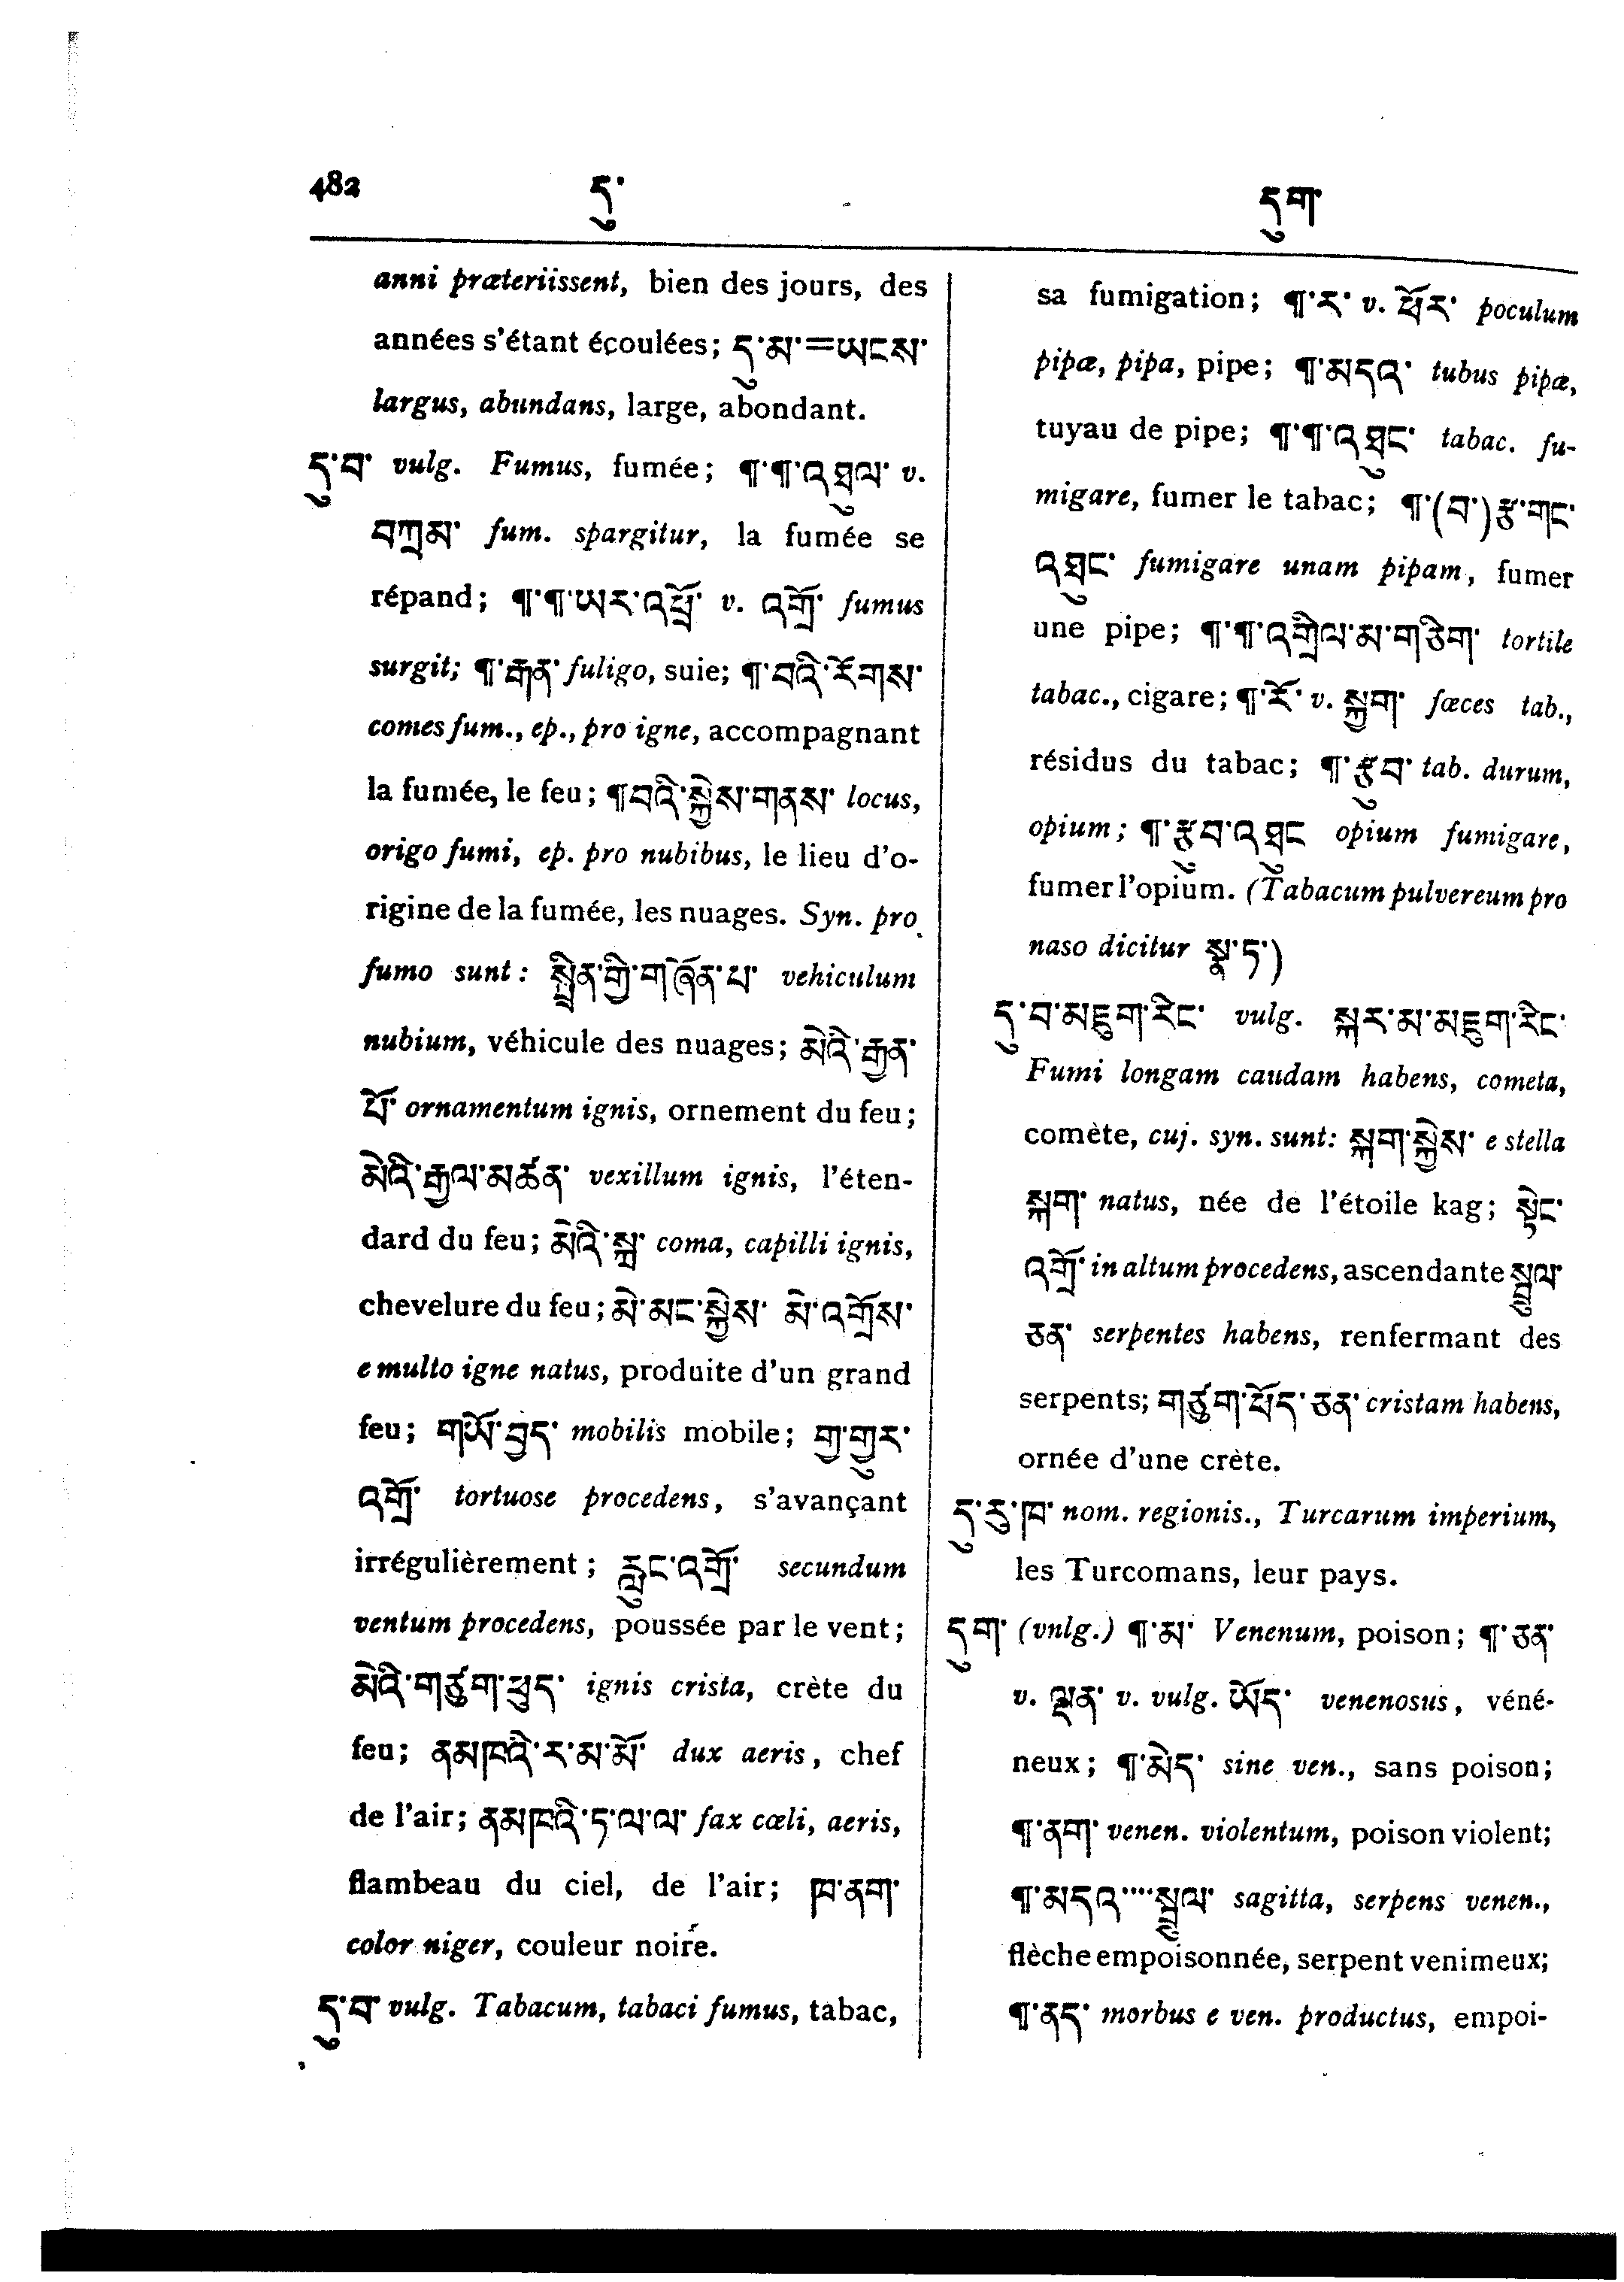 482 དུ་ དུག་
anni præteriissent, bien des jours, des
années s'étant écoulées; དུ་མ་=ཡངས་
largus, abundans, large, abondant.
དུ་བ་ vulg. Fumus, fumée; ¶་¶་འཐུལ་ v.
བཀྲམ་ fum. spargitur, la fumée se
répand; ¶་¶་ཡར་འཕྲོ་ v. འགྲོ་ fumus
surgit; ¶་རྒྲན་ fuligo, suie; ¶་བའི་རོགས་
comes fum., ep., pro igne, accompagnant
la fumée, le feu; ¶བའི་སྐྱེས་གནས་ locus,
origo fumi, ep. pro nubibus, le lieu d'o-
rigine de la fumée, les nuages. Syn. pro
fumo sunt: སྤྲིན་གྱི་གཞོན་པ་ vehiculum
nubium, véhicule des nuages; མེའི་རྒྱན་
པོ་ ornamentum ignis, ornement du feu;
མེའི་རྒྱལ་མཚན་ vexillum ignis, l'éten-
dard du feu; མེའི་སྐྲ་ coma, capilli ignis,
chevelure du feu; མེ་མང་སྐྱེས་ མེ་འགྲོས་
e multo igne natus, produite d'un grand
feu; གཡོ་བྱད་ mobilis mobile; གྱ་གྱུར་
འགྲོ་ tortuose procedens, s'avançant
irrégulièrement; རླུང་འགྲོ་ secundum
ventum procedens, poussée par le vent;
མེའི་གཙུག་ཕུད་ ignis crista, crète du
feu; ནམཁའི་ར་མ་མོ་ dux aeris, chef
de l'air; ནམཁའི་ཏ་ལ་ལ་ fax cœli, aeris,
flambeau du ciel, de l'air; ཁ་ནག་
color niger, couleur noire.
དུ་བ་ vulg. Tabacum, tabaci fumus, tabac,
sa fumigation; ¶་ར་ v. ཕོར་ poculum
pipæ, pipa, pipe; ¶་མདའ་ tubus pipæ,
tuyau de pipe; ¶་¶་འཐུང་ tabac. fu-
migare, fumer le tabac; ¶་(བ་)རྩ་གང་
འཐུང་ fumigare unam pipam, fumer
une pipe; ¶་¶་འགྲིལ་མ་གཅིག་ tortile
tabac., cigare; ¶་རོ་ v. སྐྱག་ fæces tab.,
résidus du tabac; ¶་རྩུབ་ tab. durum,
opium; ¶་རྩུབ་འཐུང opium fumigare,
fumer l'opium. (Tabacum pulvereum pro
naso dicitur སྣ་ཏ་)
དུ་བ་མཇུག་རིང་ vulg. སྐར་མ་མཇུག་རིང་
Fumi longam caudam habens, cometa,
comète, cuj. syn. sunt: སྐག་སྐྱེས་ e stella
སྐག་ natus, née de l'étoile kag; སྟེང་
འགྲོ་ in altum procedens, ascendante སྦྲུལ་
ཅན་ serpentes habens, renfermant des
serpents; གཙུག་པོད་ཅན་ cristam habens,
ornée d'une crète.
དུ་རུ་ཁ་ nom. regionis., Turcarum imperium,
les Turcomans, leur pays.
དུག་ (vnlg.) ¶་མ་ Venenum, poison; ¶་ཅན་
v. ལྡན་ v. vulg. ཡོད་ venenosus, véné-
neux; ¶་མེད་ sine ven., sans poison;
¶་ནག་ venen. violentum, poison violent;
¶་མདའ་····སྦྲུལ་ sagitta, serpens venen.,
flèche empoisonnée, serpent venimeux;
¶་ནད་ morbus e ven. productus, empoi-